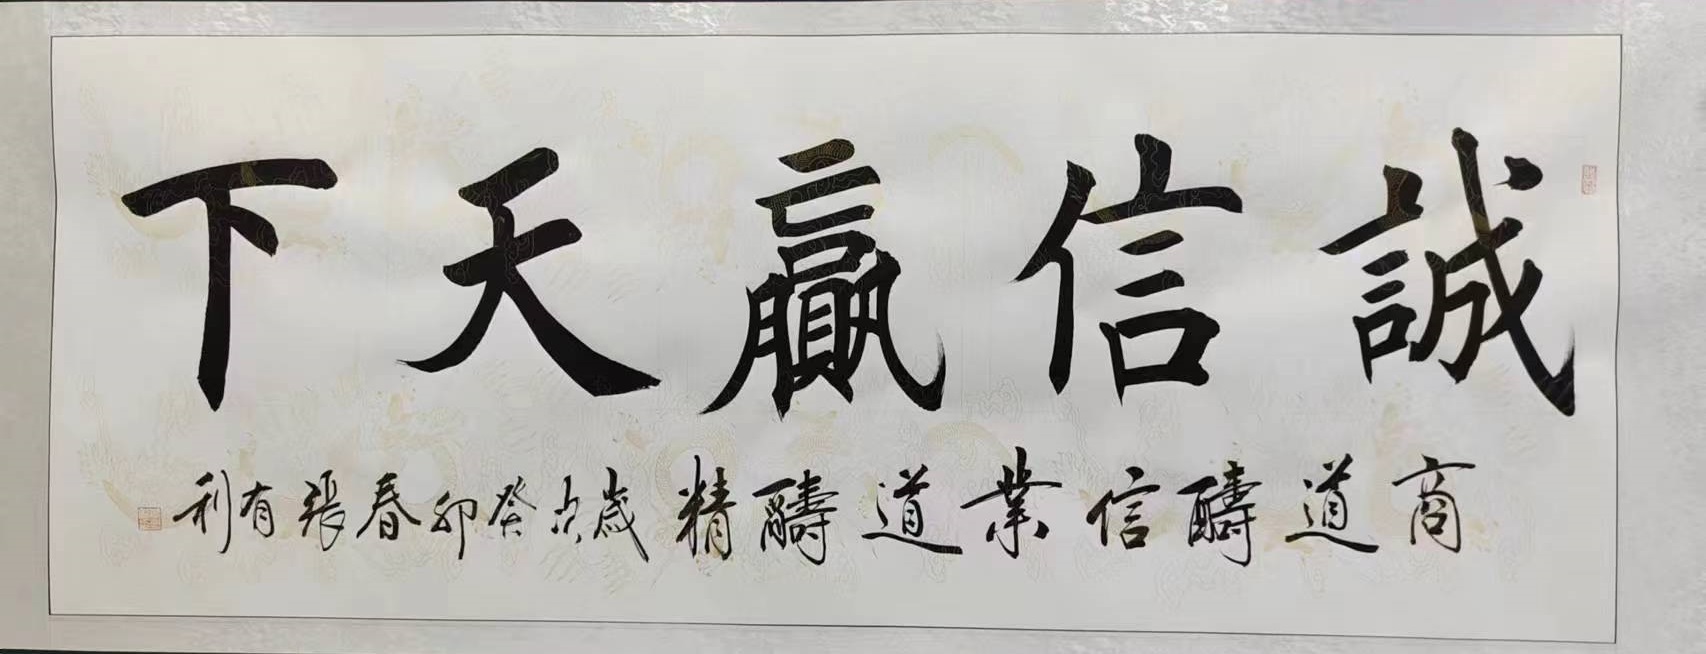 誠信贏天下
商道醻信業道醻精歲次癸卯春張有利